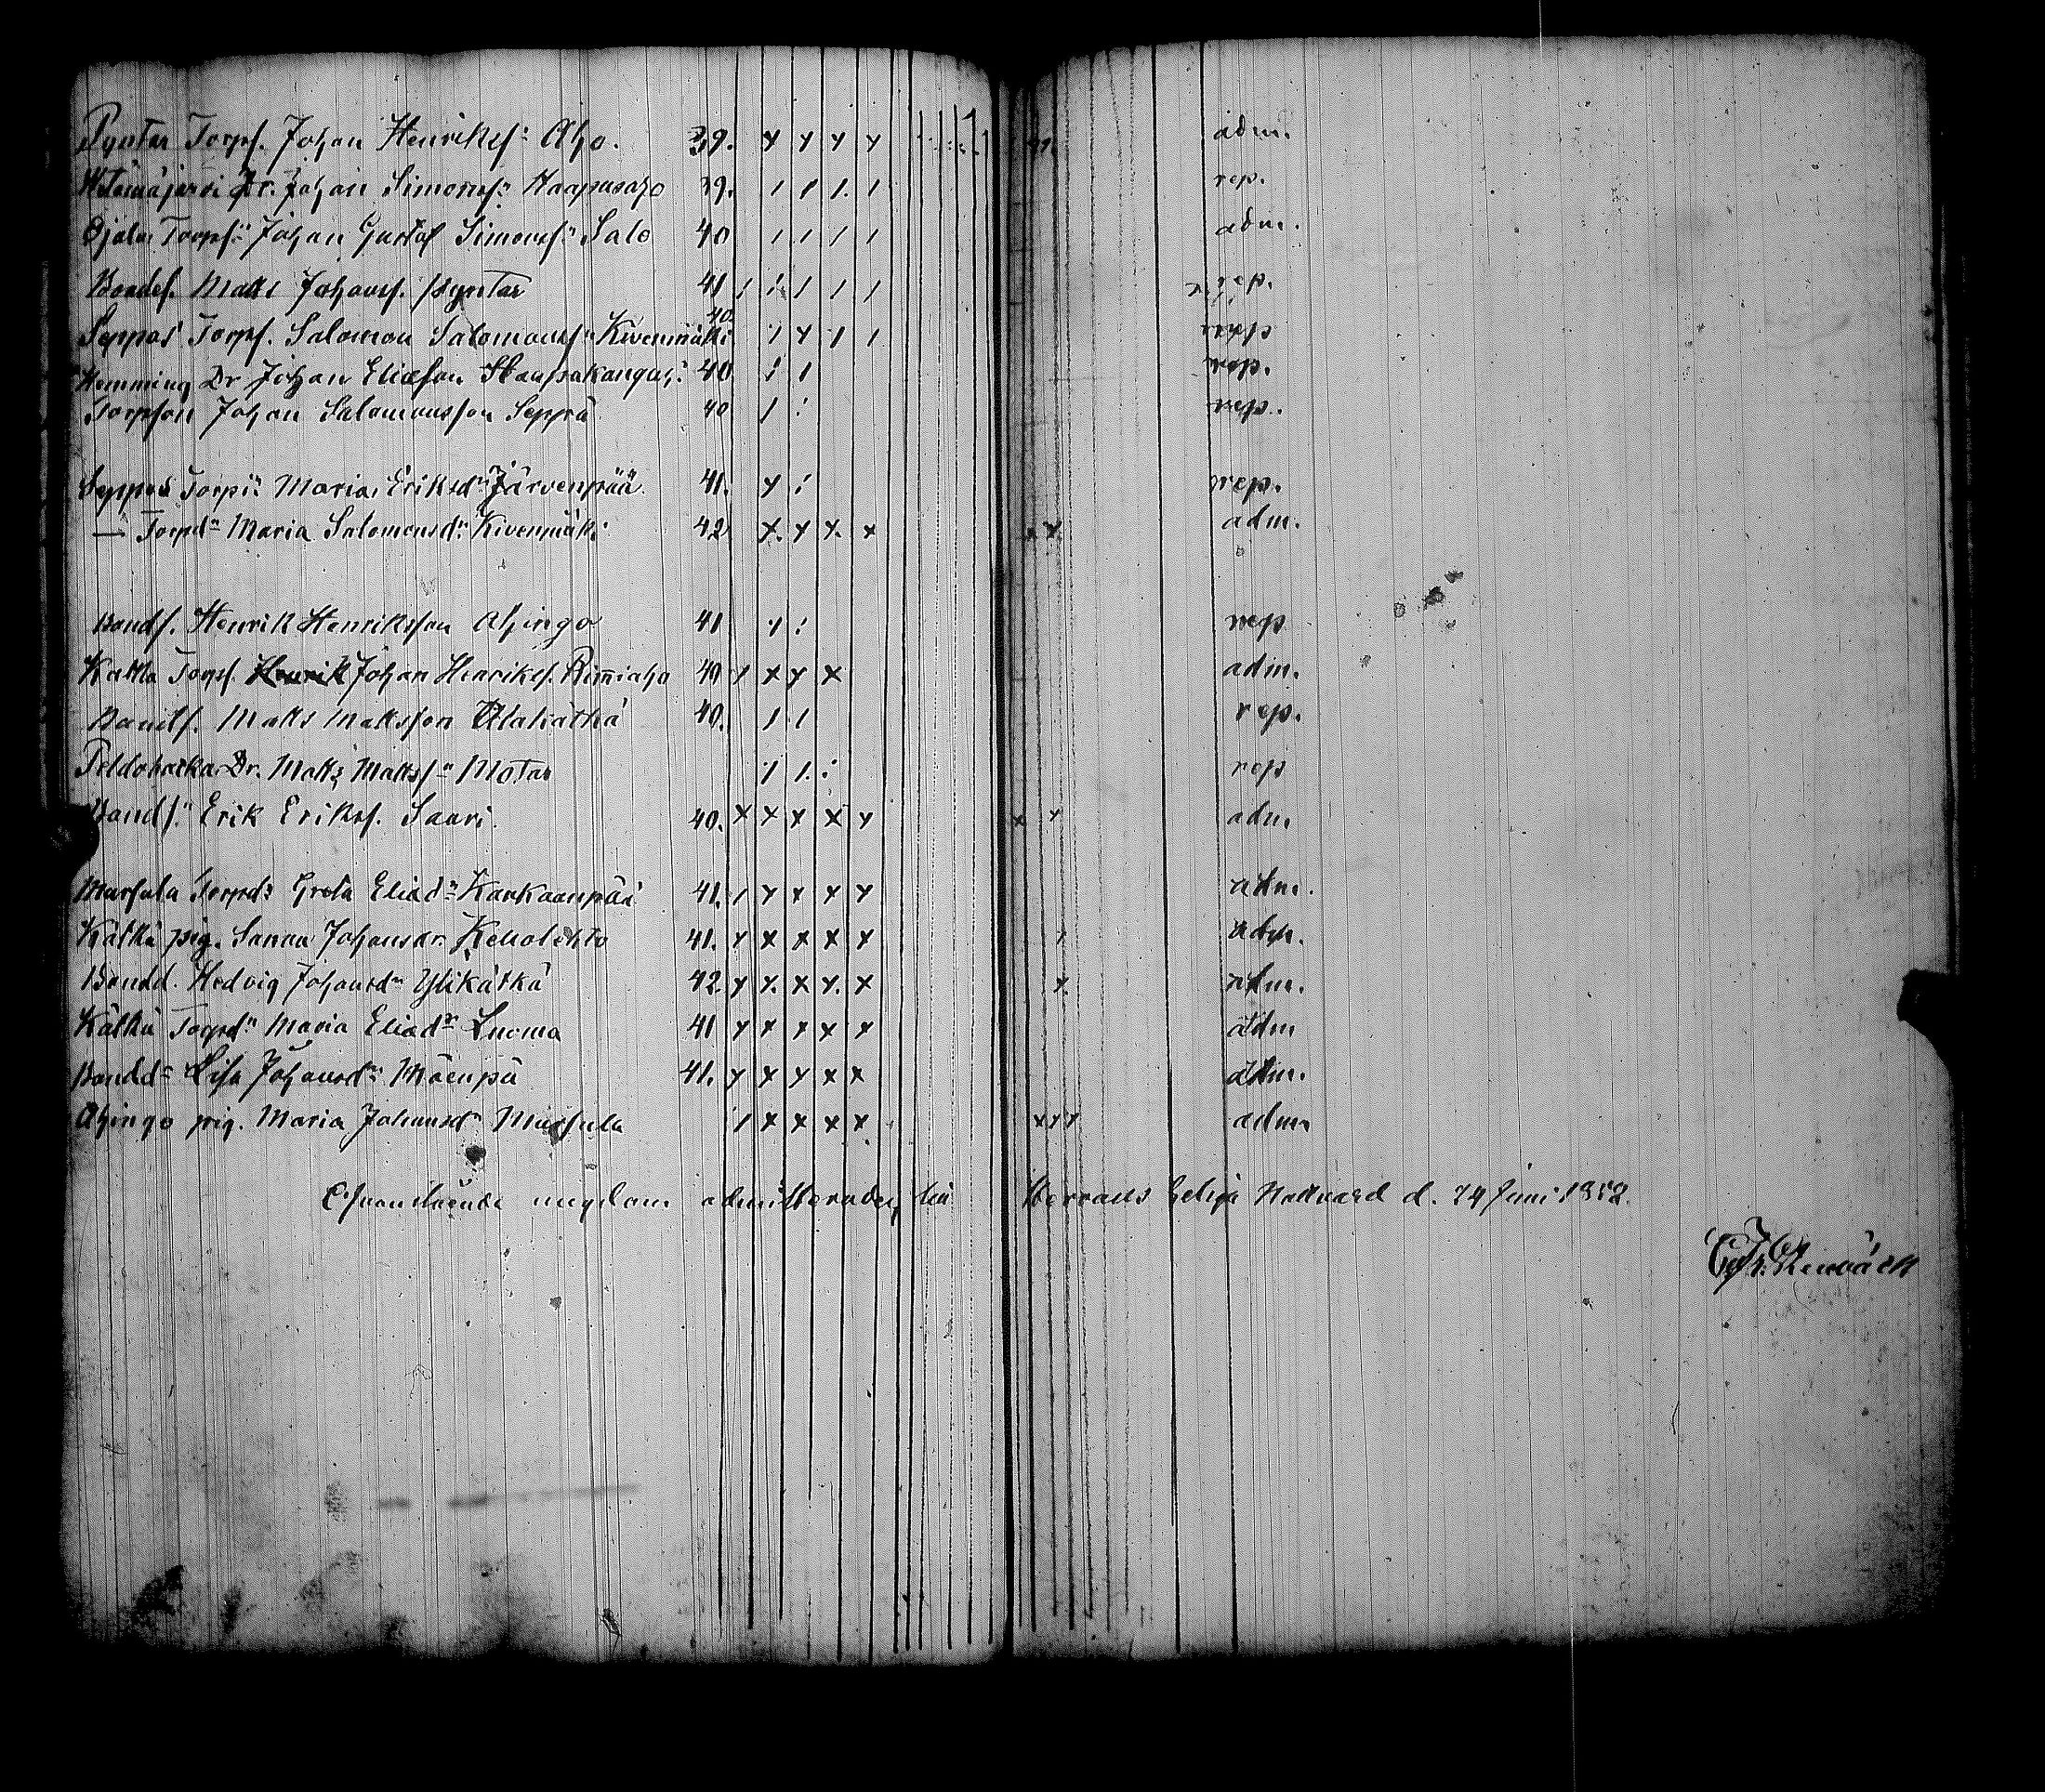 Pyntar Torps. Johan Henrikss:n Aho. 39. adm.
Dr. Johan Simonss:n Haapasaho 39. rep.
Ojala Torps:n Johan Gustaf Simonss:n Salo 40 adm.
Bondes. Matts Johanss. Pyntar 41 rep.
Seppäs Torps. Salomon Salomonss:n Kivenmäki 40. rep
Hemming Dr Johan Eliasson Haapakangas 40 rep.
Torpson Johan Salomonsson Seppä 40 rep.
Seppäs Torpi:n Maria Eriksd:r Järvenpää. 41. rep.
— Torpd:r Maria Salomonsd:r Kivenmäki 42 adm.
Bonds. Henrik Henriksson Ahingo 41 rep
Kätkä Torps. Johan Henrikss. Rimiaho 40 adm.
Bonds. Matts Mattsson Alakätkä 40. rep.
Dr. Matts Mattss:n Motar rep
Bonds:n Erik Erikss. Saari. 40. adm
Marsula Torpd:r Greta Eliæd:r Kankaanpää 41. adm.
Kätkä pig. Sanna Johansdr. Keltolehto 41. adm.
Bondd. Hedvig Johansd:r Ylikätkä 42. adm.
Kätkä Torpd:r Maria Eliæd:r Luoma 41 adm
Bondd:r Lisa Johansd:r Mäenpä 41. adm.
Ahingo pig. Maria Johansd:r Marsula adm.
Ofvanstående ungdom admitterades till Herrans heliga Nattvard d. 24 Juni 1858.